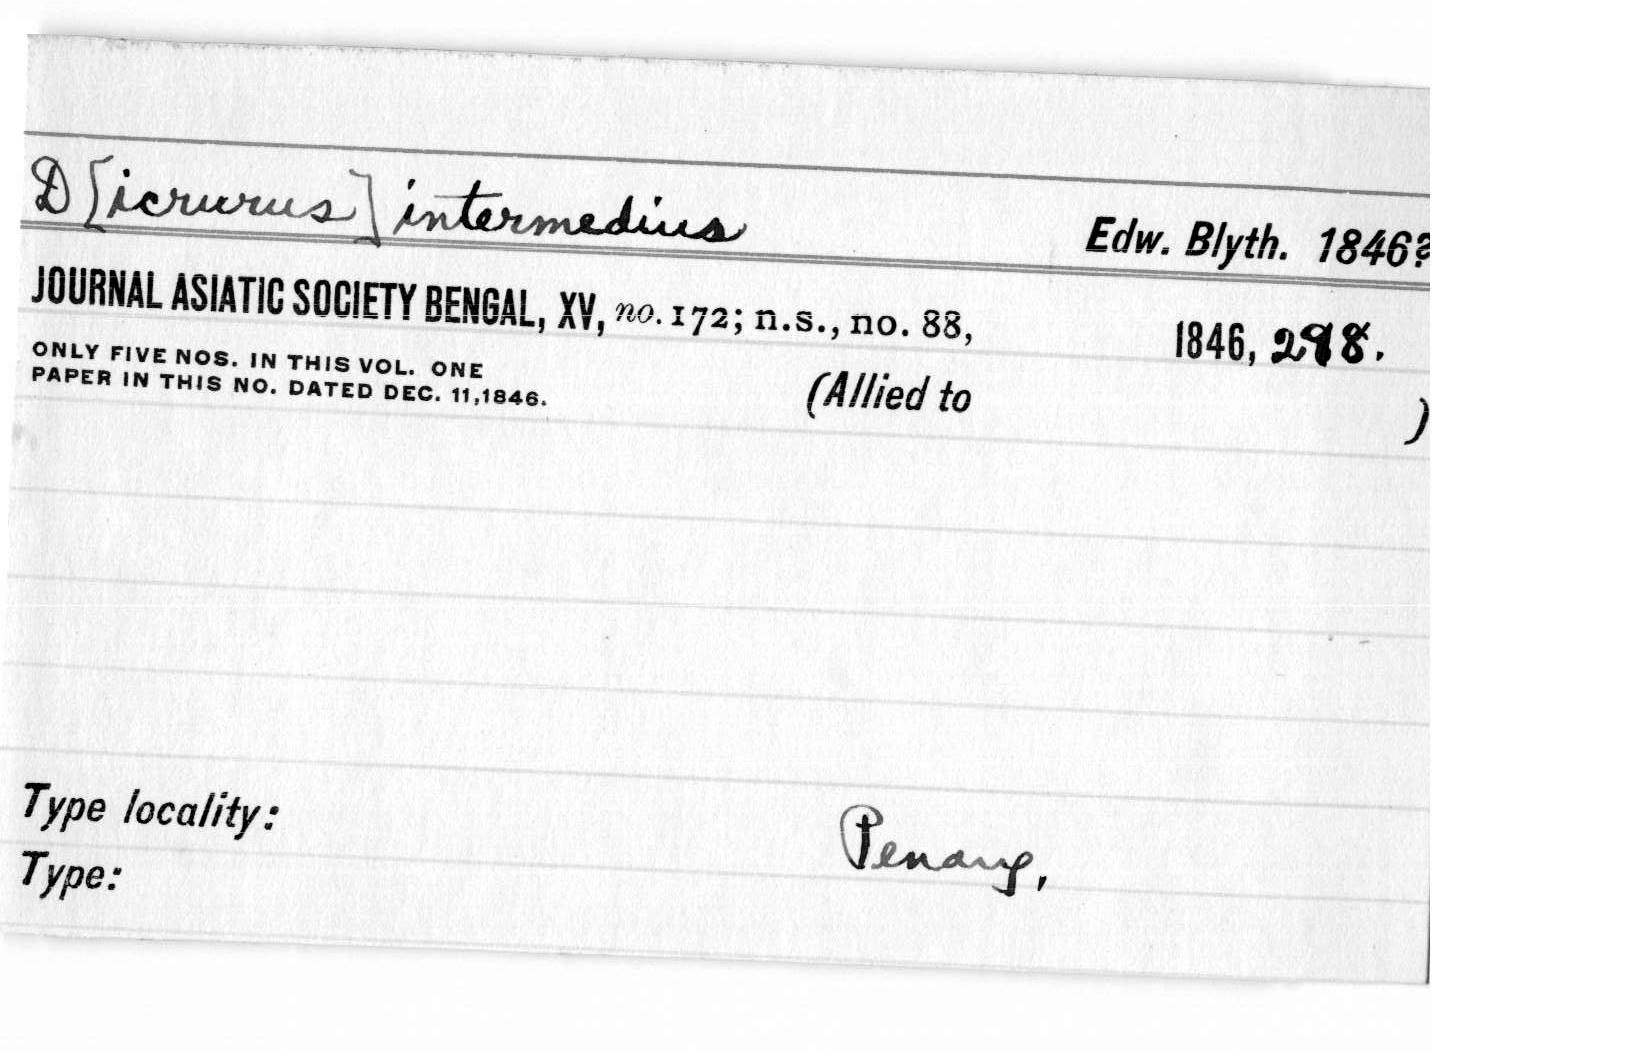 D[icrurus] intermedius Edw. Blyth. 1846?
JOURNAL ASIATIC SOCIETY BENGAL, XV, no. 172; n.s., no. 88, 1846, 298.
ONLY FIVE NOS. IN THIS VOL. ONE
PAPER IN THIS NO. DATED DEC. 11,1846.
(Allied to )
Type locality: Penang,
Type: